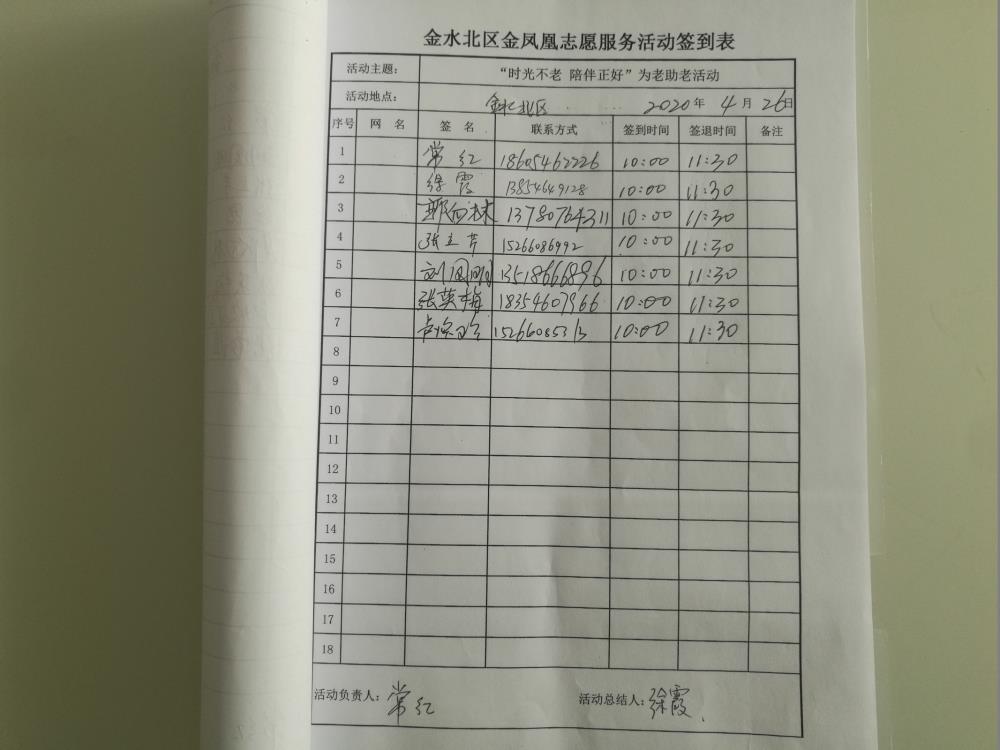 金水北区金凤凰志愿服务活动签到表
活动主题： “时光不老 陪伴正好”为老助老活动
活动地点： 金水北区 2020年 4月 26日
序号 网 名 签 名 联系方式 签到时间 签退时间 备注
1 常红 18605462226 10:00 11:30
2 徐霞 13854649128 10:00 11:30
3 13780764311 10:00 11:30
4 张立芹 15266086992 10:00 11:30
5 刘国明 13518666896 10:00 11:30
6 张英梅 18354607966 10:00 11:30
7 15266085313 10:00 11:30
8
9
10
11
12
13
14
15
16
17
18
活动负责人：常红 活动总结人：徐霞